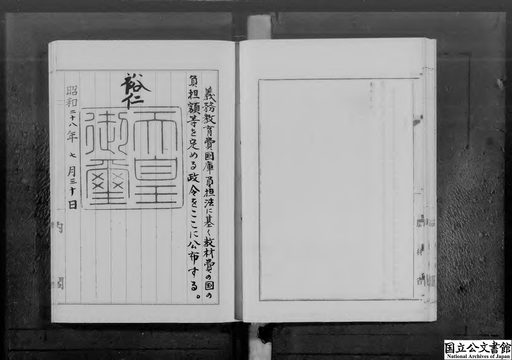 義務教育費国庫負担法に基く教材費の国の
負担額等を定める政令をここに公布する。
裕仁
天皇
御璽
昭和二十八年七月三十日
国立公文書館
National Archives of Japan